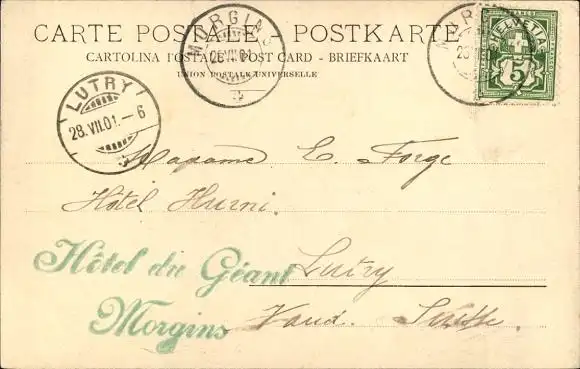 CARTE POSTALE - POSTKARTE
CARTOLINA POSTALE - POST CARD - BRIEFKAART
UNION POSTALE UNIVERSELLE
MORGINS
26 VII 01
HELVETIA
5
LUTRY
28.VII.01.-6
Madame E. Forge
Hôtel Hurni.
Hôtel du Géant
Morgins
Lutry
Vaud. Suisse.